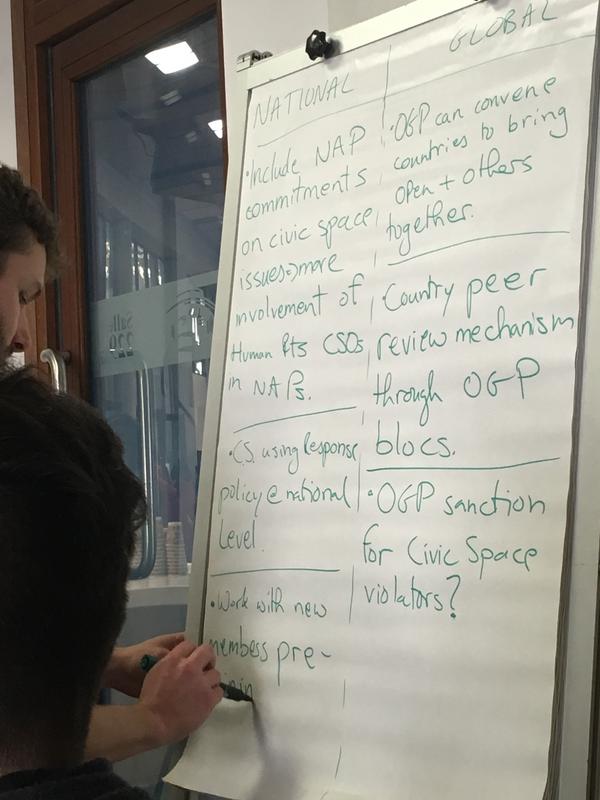 NATIONAL
•Include NAP
commitments
on civic space
issues=>more
involvement of
Human Rts CSOs
in NAPs.
•C.S. using Response
policy @ national
Level.
•Work with new
members pre-
GLOBAL
•OGP can convene
countries to bring
open + others
together.
Country peer
review mechanism
through OGP
blocs.
•OGP sanction
for Civic Space
violators?
220